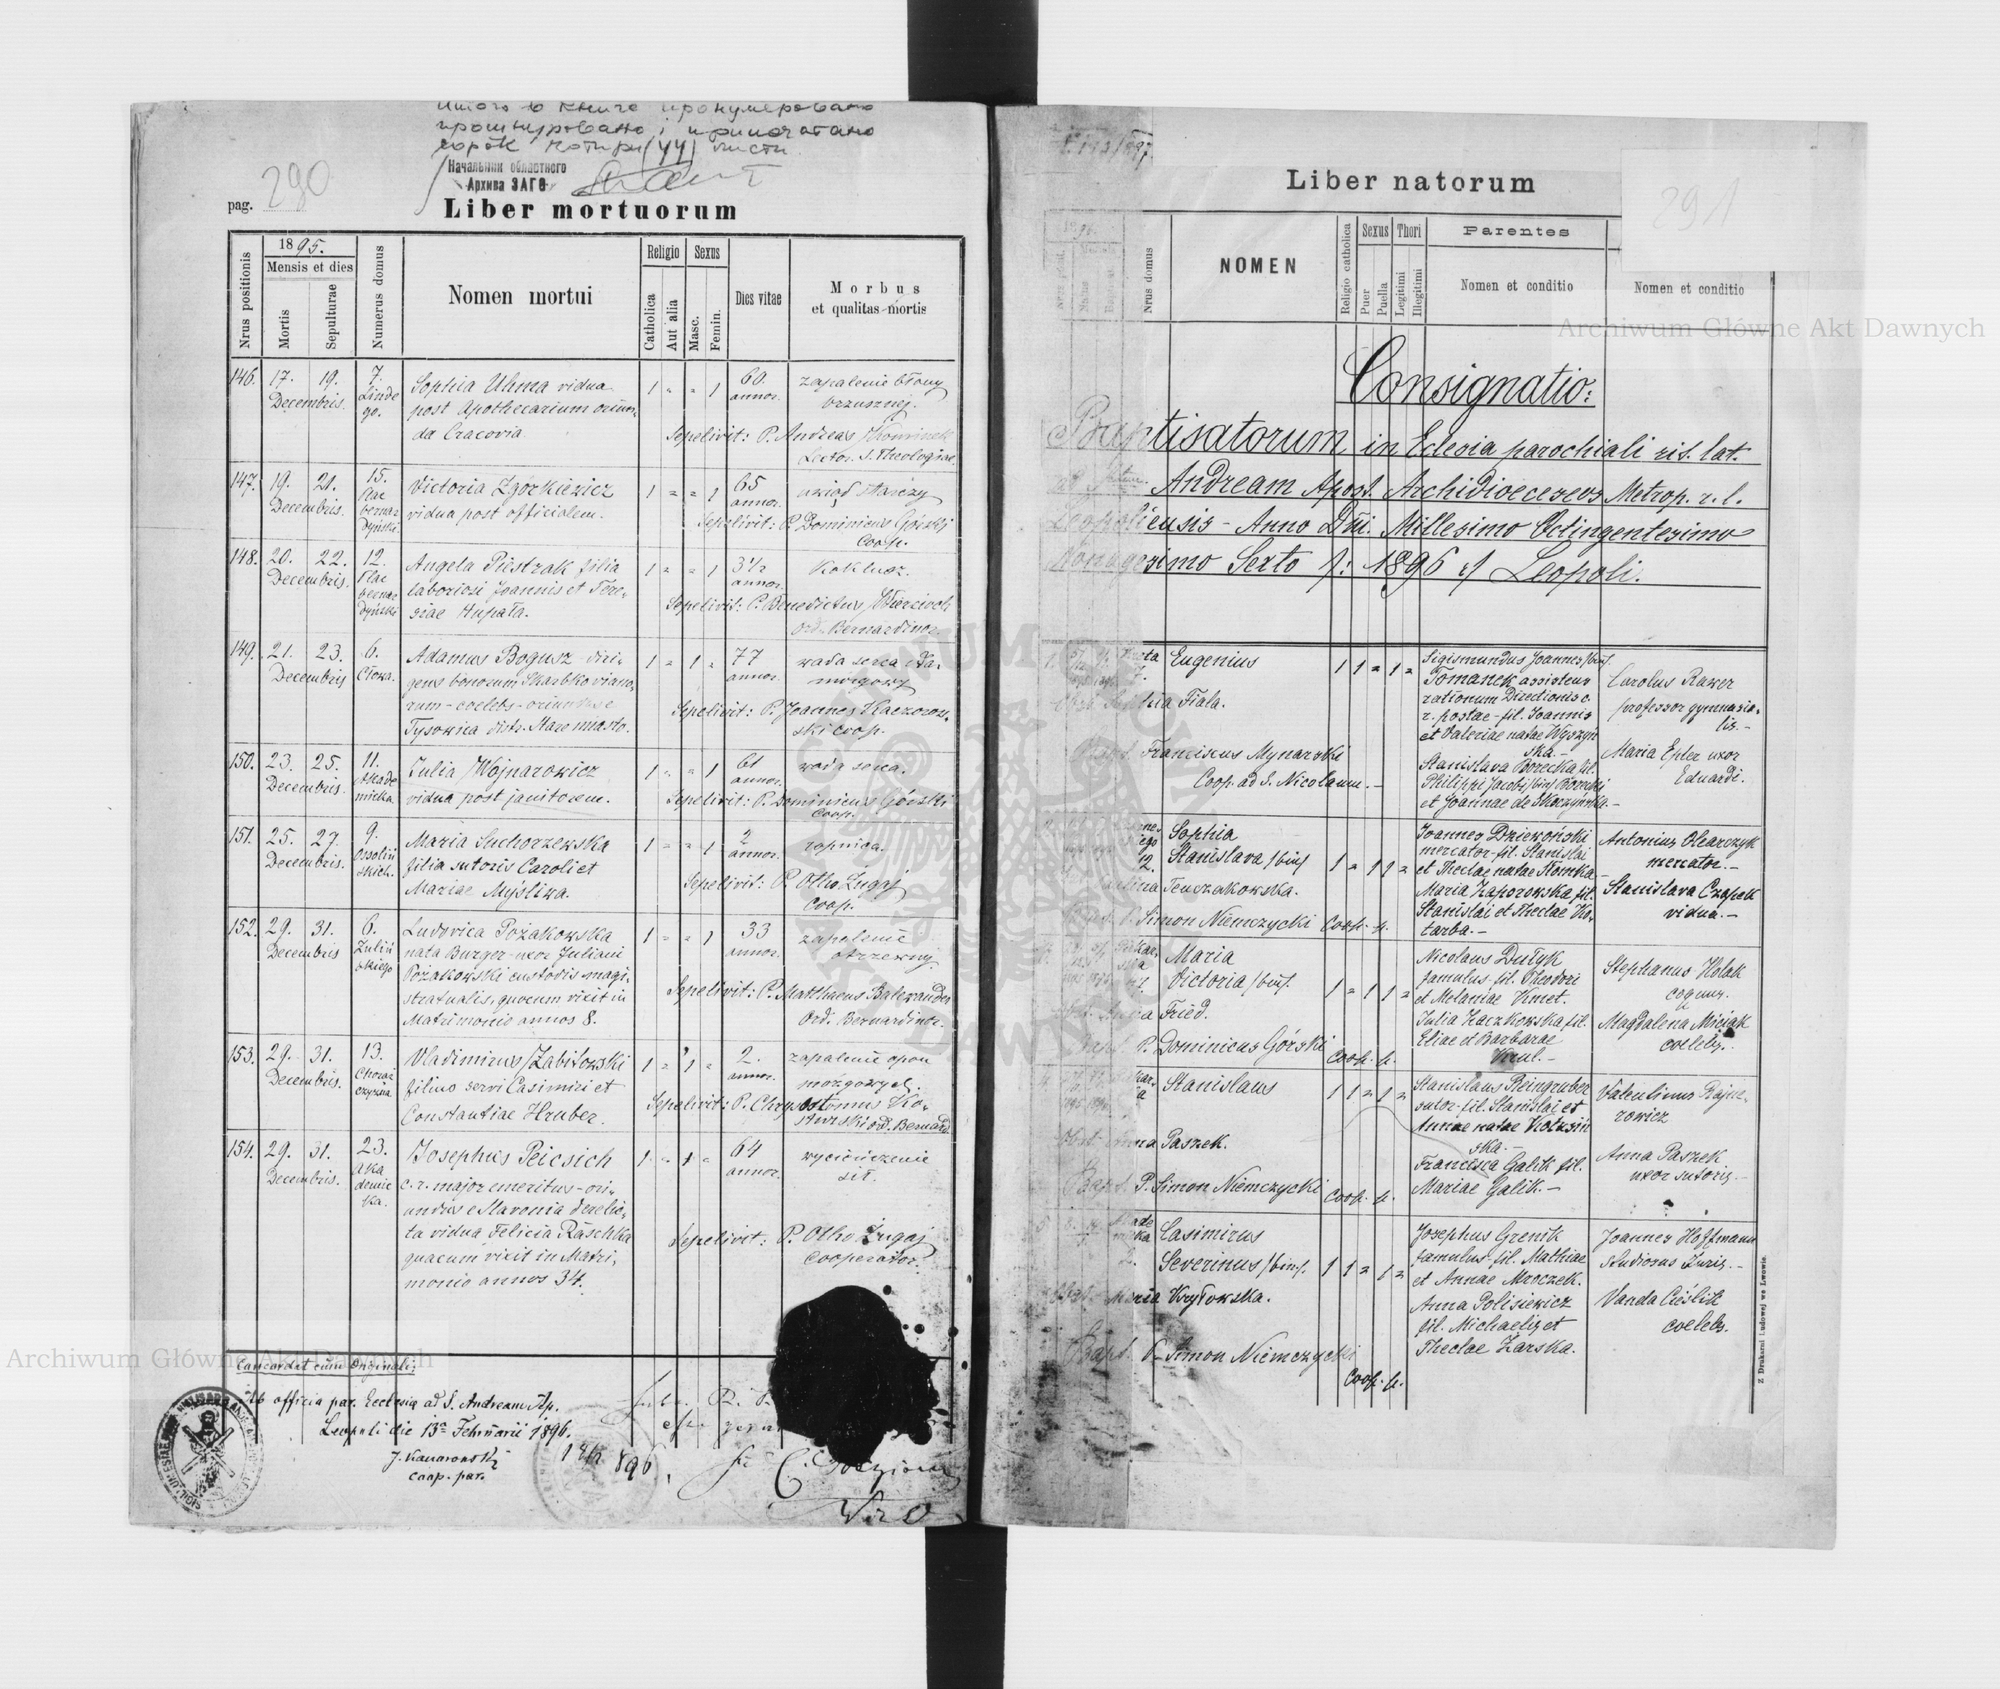 книге пронумеровано
прошнуровано і припечатано
сорок чотири (44) листи
Начальник областного
Архива ЗАГС
290
pag.
Liber mortuorum
Nrus positionis
1895.
Mensis et dies
Mortis
Sepulturae
Numerus domus
Nomen mortui
Religio
Catholica
Aut alia
Sexus
Masc.
Femin.
Dies vitae
Morbus
et qualitas mortis
146. 17. 19. 7. Sophia Uhma vidua 1 " " 1 60 zapalenie błony
Decembris. Lindego. post Apothecarium oriun- annor. brzusznej.
da Cracovia. Sepelivit: P. Andreas Kominek
Lector. S. Theologiae.
147. 19. 21. 15. Victoria Zgórkiewicz 1 " " 1 65 uwiąd starczy
Decembris. Plac bernardyński. vidua post officialem. annor.
Sepelivit: P. Dominicus Górski
Coop.
148. 20. 22. 12. Angela Piestrak filia 1 " " 1 3½ Koklusz.
Decembris. Plac bernardyński laboriosi Joannis et There- annor.
siae Hupała. Sepelivit: P. Benedictus
Ord. Bernardinor.
149. 21. 23. 6. Adamus Bogusz diri- 1 " 1 " 77 wada serca
Decembris Cłowa. gens bonorum Skarbkoviano- annor.
rum - coelebs - oriundus e Sepelivit: P. Joannes Kaczorow-
Tysowica distr. Stare miasto. ski coop.
150. 23. 25. 11. Julia Wojnarowicz 1 " " 1 61 wada serca.
Decembris. Akademicka. vidua post janitorem. annor.
Sepelivit: P. Dominicus Górski
Coop.
151. 25. 27. 9. Maria Suchorzewska 1 " " 1 2 ropnica.
Decembris. Ossolińskich. filia sutoris Caroli et annor.
Mariae Myśliwa. Sepelivit: P. Otho Żugaj
Coop.
152. 29. 31. 6. Ludovica Pożakowska 1 " " 1 33 zapalenie
Decembris Zulińskiego nata Burger - uxor Juliani annor. otrzewny.
Pożakowski custodis magi-
stratualis, quocum vixit in Sepelivit: P. Matthaeus
Matrimonio annos 8. Ord. Bernardinor.
153. 29. 31. 13. Vladimirus Zabiłowski 1 " 1 " 2. zapalenie opon
Decembris. Chorążczyzna filius servi Casimiri et annor. mózgowych.
Constantiae Hruber. Sepelivit: P. Chrysostomus
Ord. Bernard.
154. 29. 31. 23. Josephus Peicsich 1 " 1 " 64 wycieńczenie
Decembris. Akademicka. c. r. major emeritus - ori- annor. sił.
undus e Slavonia derelic-
ta vidua Felicia Räschka Sepelivit: P. Otho Żugaj
quacum vixit in Matri- cooperator.
monio annos 34.
Concordat cum Originali:
Ab officio par. Ecclesiae ad S. Andream Ap.
Leopoli die 13a Februarii 1896.
coop. par.
896
Liber natorum
291
NOMEN
Nrus domus
Religio catholica
Sexus
Puer
Puella
Thori
Legitimi
Illegitimi
Parentes
Nomen et conditio
Nomen et conditio
Consignatio:
Baptisatorum in Eclesia parochiali rit. lat.
Andream Apost. Archidioeceseos Metrop. r. l.
Leopoliensis - Anno Dni. Millesimo Octingentesimo
Nonagesimo Sexto /: 1896 :/ Leopoli.
Eugenius 1 1 " 1 " Sigismundus Joannes /bin/. Carolus Rawer
Tomanek assistens professor gymnasia-
rationum Directionis c. lis. -
Fiala. r. postae - fil. Joannis
et Valeriae natae Wyszyń
ska. - Maria Epler uxor
Franciscus Mynarski Stanislava Borecka fil. Eduardi.
Coop. ad S. Nicolaum. - Philippi Jacobi /bin/ Borecki
et Joannae de Skarzyńska. -
Sophia Joannes Dziewoński Antonius Olearczyk
Stanislava /bin/ 1 " 1 1 " mercator - fil. Stanislai mercator. -
12. et Theclae natae Słomka
Tenczakowska. Maria Zaporowska fil. Stanislava Czapek
P. Simon Niemczycki Coop. p. Stanislai et Theclae Ko- vidua. -
tarba. -
Maria Nicolaus Dutyk Stephanus Holak
Victoria /bin/. 1 " 1 1 " famulus - fil. Theodori coquus.
et Melaniae Kmet.
Fried. Julia Kaczkowska fil. Magdalena Miciak
P. Dominicus Górski Coop. p. Eliae et Barbarae coelebs. -
Stanislaus 1 1 " 1 " Stanislaus Reingruber Valentinus Rajne-
sutor - fil. Stanislai et rowicz
Anna Paszek. Annae natae Kotusiń
ska - Anna Paszek
Francisca Galik fil. uxor sutoris. -
Bapt. P. Simon Niemczycki Coop. p. Mariae Galik. -
Casimirus Josephus Grenik Joannes Hoffmann
2. Severinus /bin/. 1 1 " 1 " famulus - fil. Mathiae studiosus Juris. -
et Annae Mroczek.
Maria Kryłowska. Anna Polisiewicz Vanda Cieślik
fil. Michaelis et coelebs.
Bapt. P. Simon Niemczycki Theclae Zarska.
Coop. p.
Z Drukarni Ludowej we Lwowie.
Archiwum Główne Akt Dawnych
Archiwum Główne Akt Dawnych